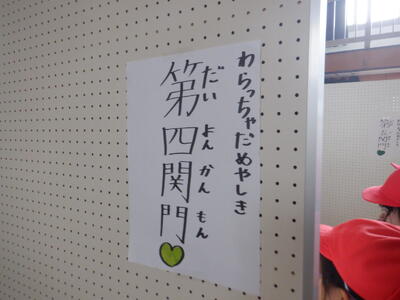 わらっちゃだめやしき
だい よん かん もん
第四関門